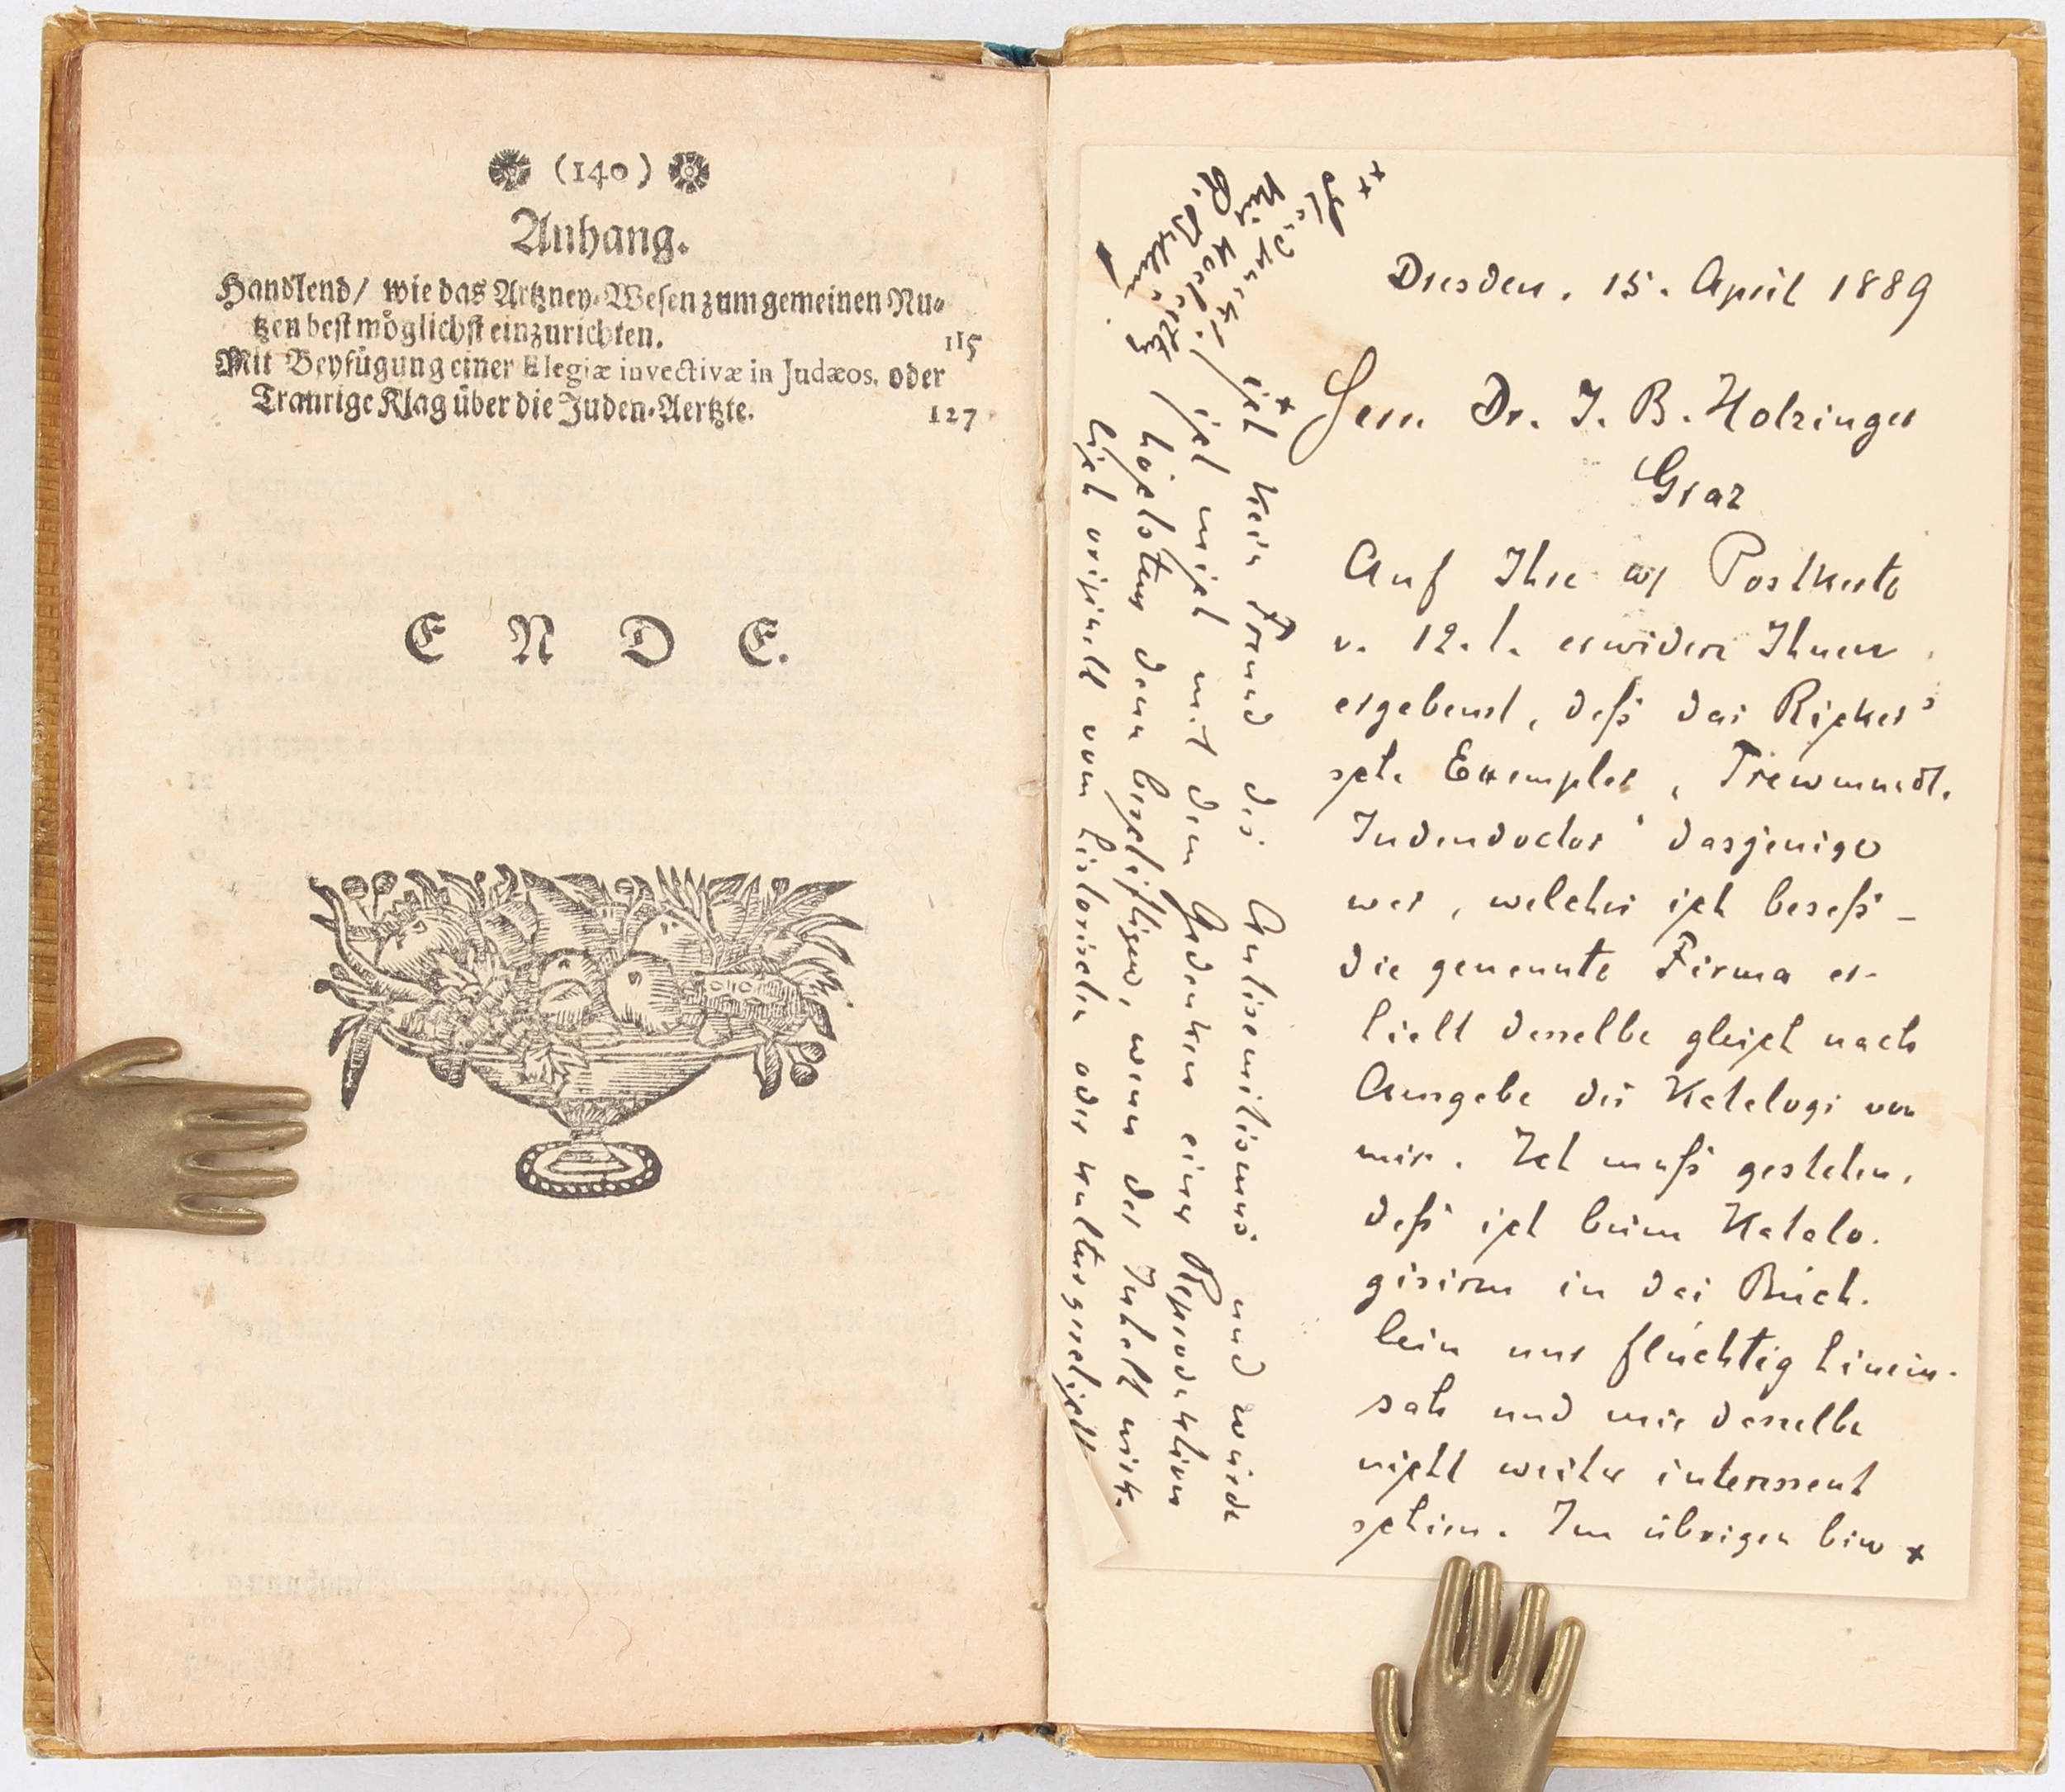 (140)
Anhang.
Handlend/ wie das Artzney-Wesen zum gemeinen Nu-
tzen best möglichst einzurichten. 115
Mit Beyfügung einer Elegiæ invectivæ in Judæos, oder
Traurige Klag über die Juden-Aertzte. 127
E N D E.
Dresden, 15. April 1889
Herrn Dr. J. B. Holzinger
Graz
Auf Ihre Postkarte
v. 12. l. erwidere Ihnen
ergebenst, daß das Ricker'
sche Exemplar „Trewmundt,
Judendoctor“ dasjenige
war, welches ich besaß –
die genannte Firma er-
hielt dasselbe gleich nach
Ausgabe des Katalogs von
mir. Ich muß gestehen,
daß ich beim Katalo-
gisiren in das Büch-
lein nur flüchtig hinein-
sah und mir dasselbe
nicht weiter interessant
schien. Im übrigen bin x
x ich kein Freund des Antisemitismus und würde
ich mich mit dem Gedanken einer Reproduktion
höchstens dann beschäftigen, wenn der Inhalt wirk-
lich originell vom historischen oder kulturgeschichtl
xx